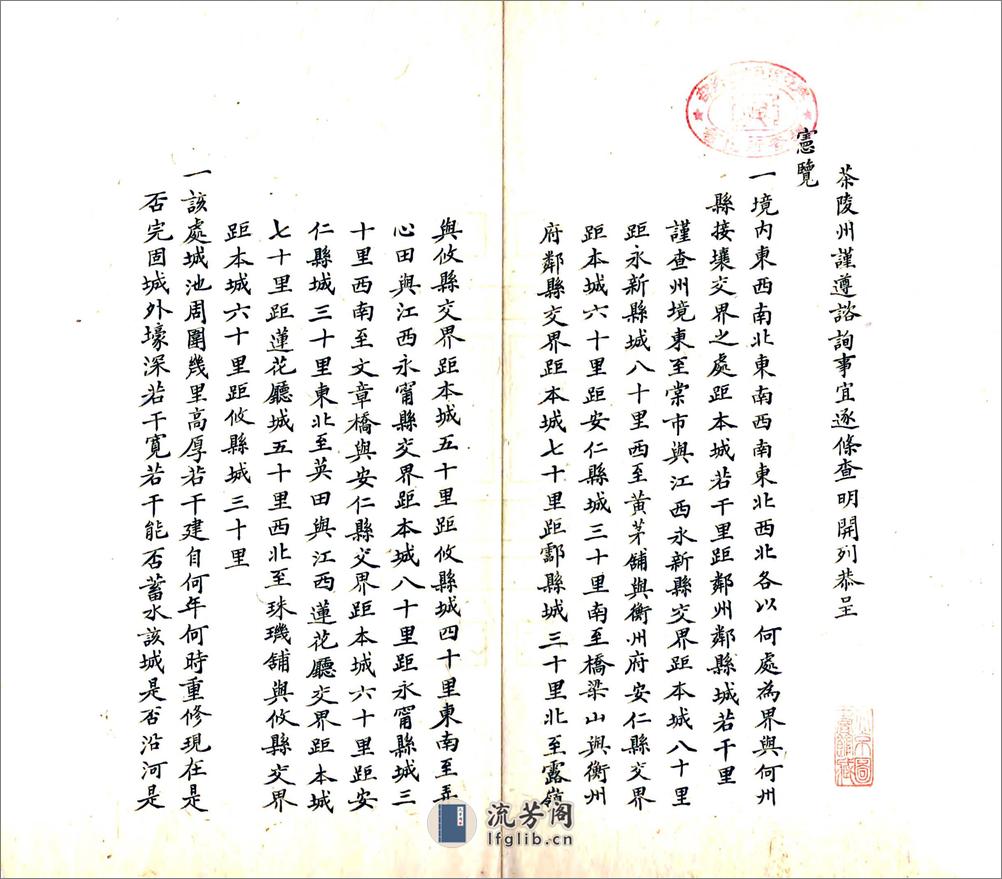 茶陵州謹遵諮詢事宜逐條查明開列恭呈
憲覽
一境內東西南北東南西南東北西北各以何處為界與何州
縣接壤交界之處距本城若干里距鄰州鄰縣城若干里
謹查州境東至棠市與江西永新縣交界距本城八十里
距永新縣城八十里西至黃茅舖與衡州府安仁縣交界
距本城六十里距安仁縣城三十里南至橋梁山與衡州
府鄰縣交界距本城七十里距酃縣城三十里北至露嶺
與攸縣交界距本城五十里距攸縣城四十里東南至弄
心田與江西永甯縣交界距本城八十里距永甯縣城三
十里西南至文章橋與安仁縣交界距本城六十里距安
仁縣城三十里東北至英田與江西蓮花廳交界距本城
七十里距蓮花廳城五十里西北至珠璣舖與攸縣交界
距本城六十里距攸縣城三十里
一該處城池周圍幾里高厚若干建自何年何時重修現在是
否完固城外壕深若干寬若干能否蓄水該城是否沿河是
流芳阁
lfglib.cn